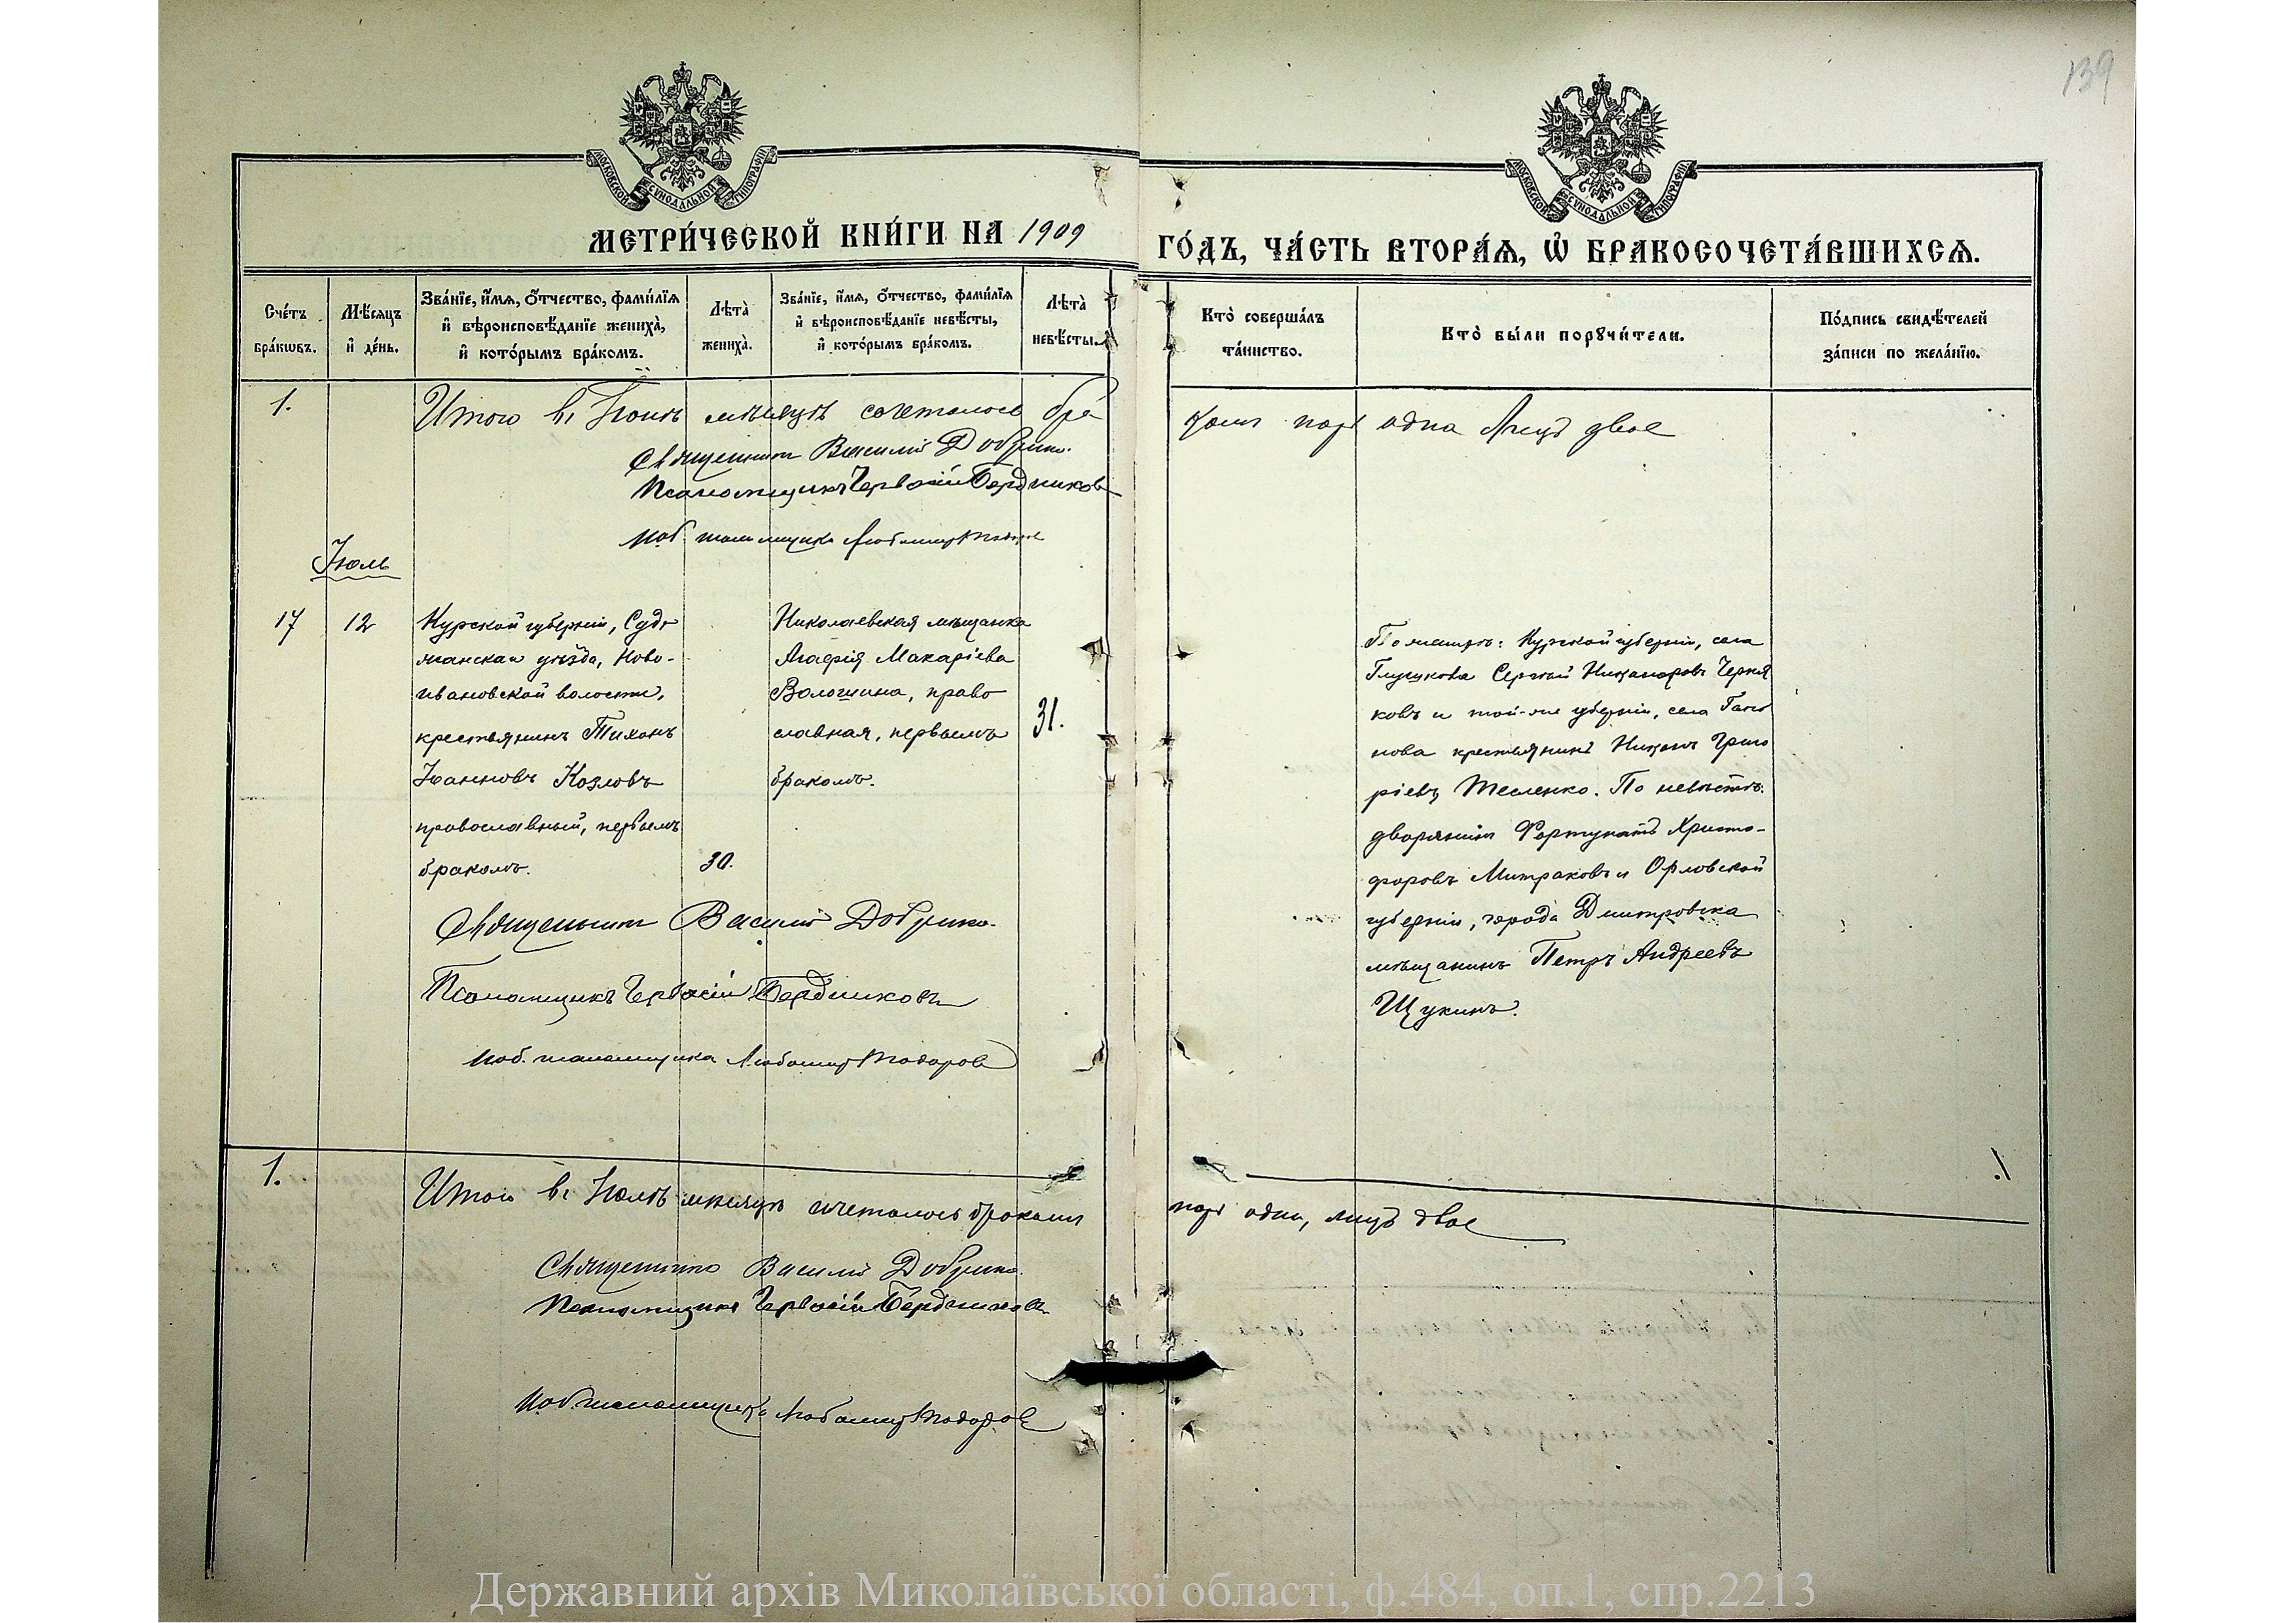 139
МОСКОВСКОЙ СУНОДАЛЬНОЙ ТИПОГРАФІИ
МОСКОВСКОЙ СУНОДАЛЬНОЙ ТИПОГРАФІИ
МЕТРИ́ЧЕСКОЙ КНИ́ГИ НА 1909
ГО́ДЪ, ЧА́СТЬ ВТОРА́Ѧ, Ѽ БРАКОСОЧЕТА́ВШИХСѦ.
Сче́тъ бра́кѡвъ.
Мѣ́сяцъ и҆ де́нь.
Зва́нїе, и҆́мѧ, ѻ҆́тчество, фами́лїѧ и҆ вѣроисповѣ́данїе жениха̀, и҆ кото́рымъ бра́комъ.
Лѣта̀ жениха̀.
Зва́нїе, и҆́мѧ, ѻ҆́тчество, фами́лїѧ и҆ вѣроисповѣ́данїе невѣ́сты, и҆ кото́рымъ бра́комъ.
Лѣта̀ невѣ́сты.
Кто̀ соверша́лъ та́инство.
Кто̀ бы́ли порꙋчи́тели.
По́дпись свидѣ́телей за́писи по жела́нїю.
1.
Итого въ Іюнѣ мѣсяцѣ сочеталось бра
комъ паръ одна Лицъ двое
Священникъ Василій
Псаломщикъ Бердниковъ
псаломщика
Іюль
17
12
Курской губерніи, Суд-
жанскаго уѣзда, Ново-
ивановской волости,
крестьянинъ Тихонъ
Іоанновъ Козловъ
православный, первымъ
бракомъ.
30.
Николаевская мѣщанка
Агафія Макаріева
Волошина, право
славная, первымъ
бракомъ.
31.
По женихѣ: Курской губерніи, села
Глушкова Сергѣй Никаноровъ Черня
ковъ и той-же губерніи, села
нова крестьянинъ Григо
ріевъ Тесленко. По невѣстѣ:
дворянинъ Фортунатъ Христо-
форовъ Митраковъ и Орловской
губерніи, города Дмитровска
мѣщанинъ Петръ Андреевъ
Щукинъ.
Священникъ Василій
Псаломщикъ Бердниковъ
псаломщика Тодоровъ
1.
Итого въ Іюлѣ мѣсяцѣ сочеталось бракомъ
паръ одна, лицъ двое
Священникъ Василій
Псаломщикъ Бердниковъ
псаломщика Тодоровъ
Державний архів Миколаївської області, ф.484, оп.1, спр.2213